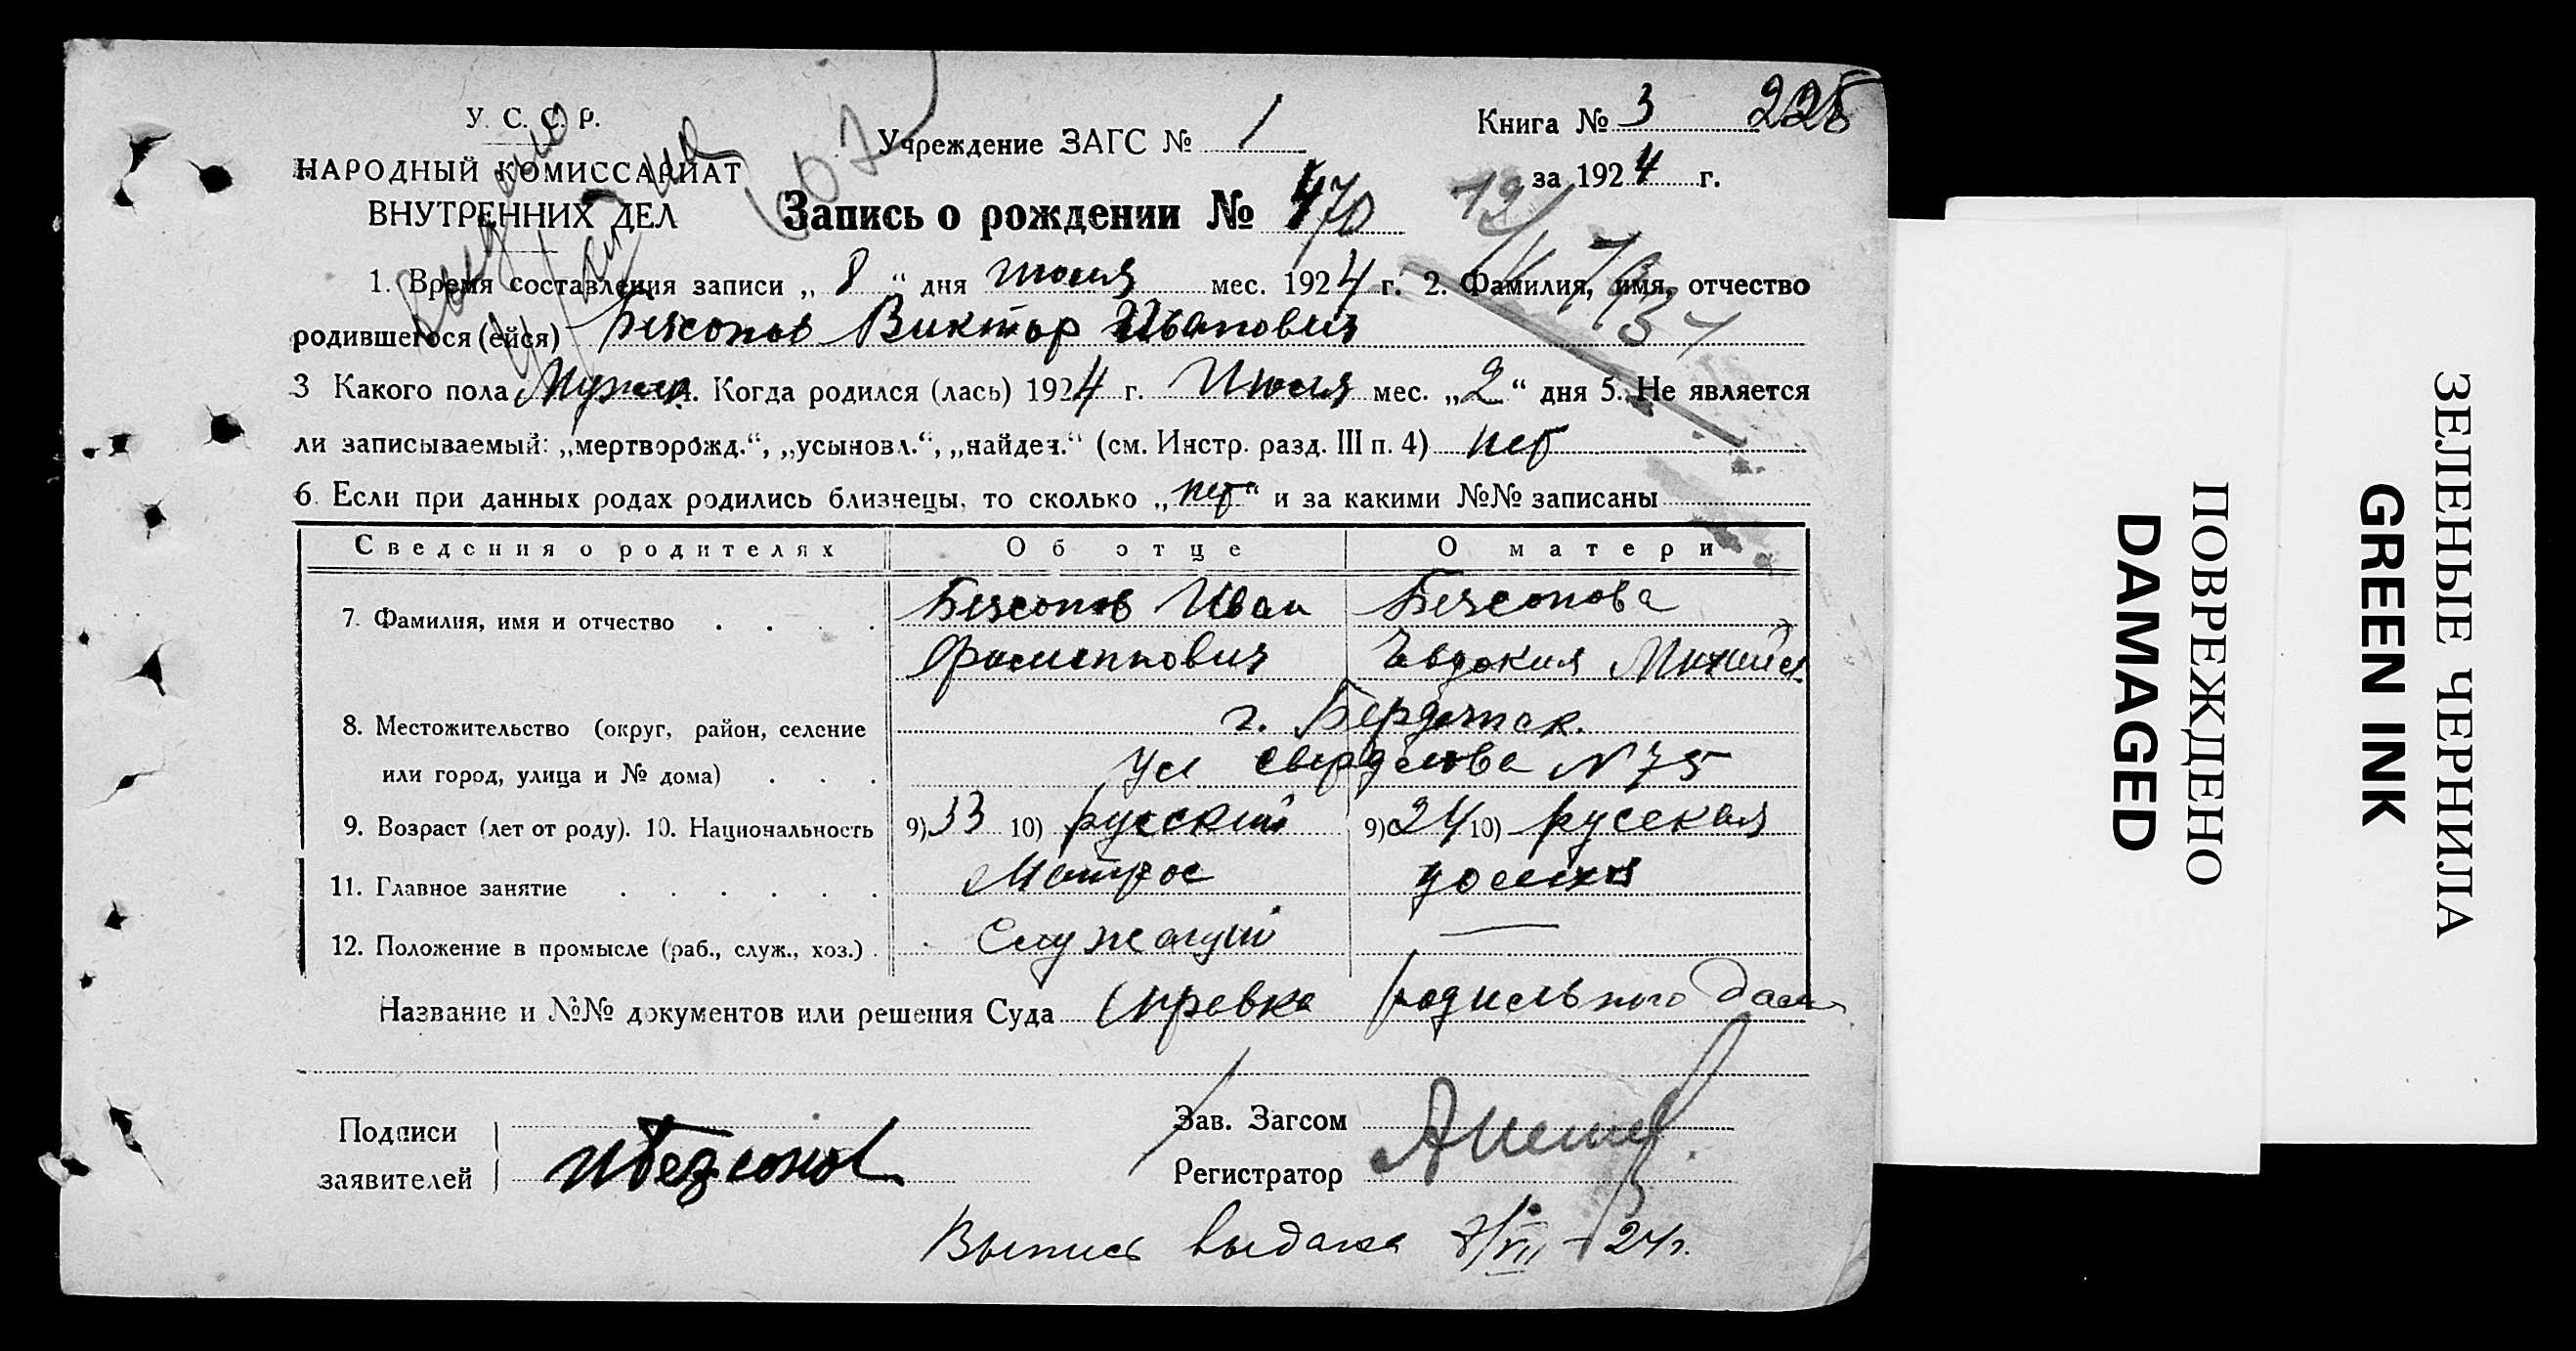 У. С. С. Р.
НАРОДНЫЙ КОМИССАРИАТ
ВНУТРЕННИХ ДЕЛ
Учреждение ЗАГС № 1
Книга № 3
за 1924 г.
Запись о рождении № 470
1. Время составления записи „ 8 “ дня июля мес. 1924 г. 2. Фамилия, имя, отчество
родившегося (ейся) Безсонов Виктор Иванович
3 Какого пола Мужск. 4. Когда родился (лась) 1924 г. Июля мес. „2“ дня 5. Не является
ли записываемый: „мертворожд.“, „усыновл.“, „найден.“ (см. Инстр. разд. III п. 4) нет
6. Если при данных родах родились близнецы, то сколько „нет“ и за какими №№ записаны
Сведения о родителях Об отце О матери
7. Фамилия, имя и отчество Безсонов Иван Безсонова
Евдокия
8. Местожительство (округ, район, селение г. Бердянск.
или город, улица и № дома) ул Свердлова N 75
9. Возраст (лет от роду). 10. Национальность 9) 33 10) русский 9) 24 10) русская
11. Главное занятие Матрос домхоз
12. Положение в промысле (раб., служ., хоз.) Служащий —
Название и №№ документов или решения Суда Справка родильного дома
Подписи
заявителей
ИБезсонов
Зав. Загсом
Регистратор
Выпись выдана 8/VII - 24г.
ПОВРЕЖДЕНО
DAMAGED
ЗЕЛЕНЫЕ ЧЕРНИЛА
GREEN INK